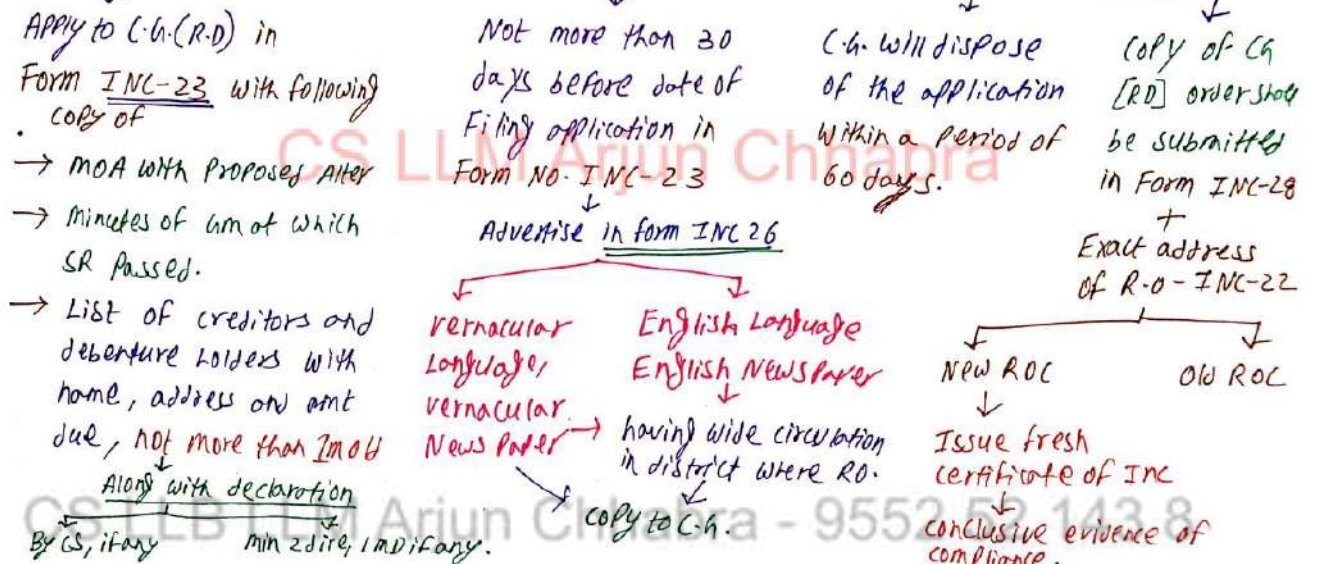 Apply to C.G.(R.D) in
Form INC-23 with following
copy of
→ MOA with Proposed Alter
→ Minutes of GM at which
SR Passed.
→ List of creditors and
debenture holders with
name, address and amt
due, not more than 1m old
Along with declaration
By CS, if any
min 2 dire, 1 MD if any.
Not more than 30
days before date of
Filing application in
Form No. INC-23
Advertise in form INC 26
vernacular
Language,
vernacular
News Paper
English Language
English News Paper
having wide circulation
in district where RO.
copy to C.G.
C.G. will dispose
of the application
within a period of
60 days.
copy of CG
[RD] order shall
be submitted
in Form INC-28
+
Exact address
of R.O - INC-22
New ROC
Old ROC
Issue fresh
certificate of Inc
conclusive evidence of
compliance.
CS LLM Arjun Chhabra
CS LLB LLM Arjun Chhabra - 9552 52 143 8